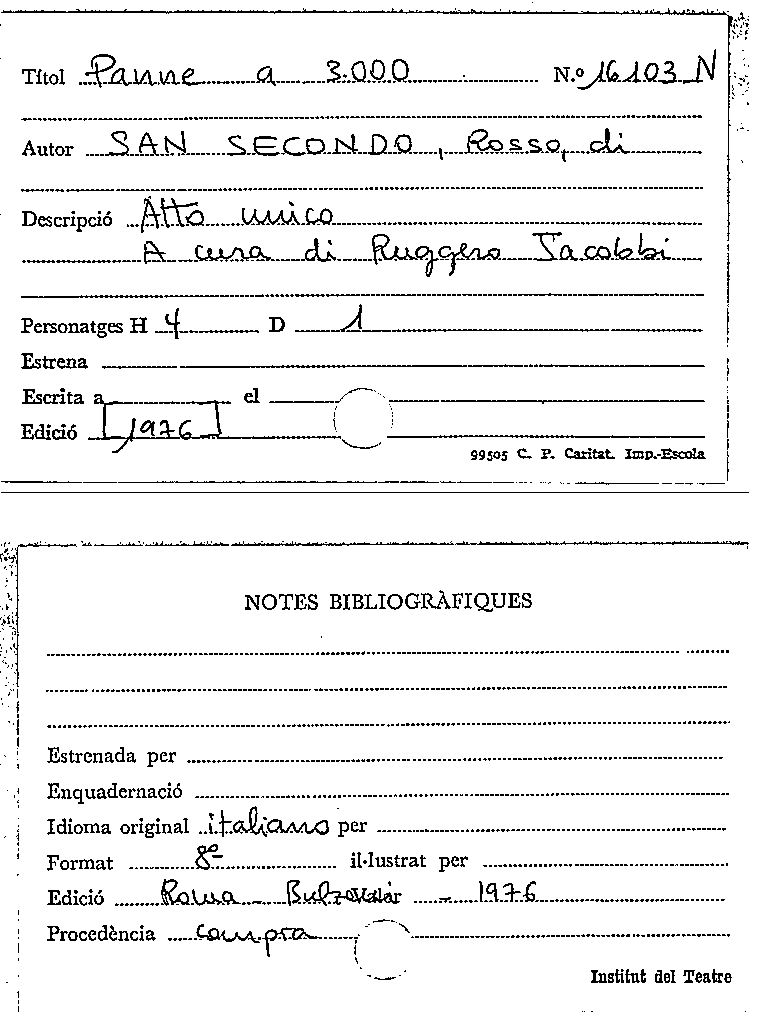 Títol Panne a 3.000 N.º 16103 N
Autor SAN SECONDO, Rosso, di
Descripció Atto unico
A cura di Ruggero Jacobbi
Personatges H 4 D 1
Estrena
Escrita a el
Edició 1976
99505 C. P. Caritat. Imp.-Escola
NOTES BIBLIOGRÀFIQUES
Estrenada per
Enquadernació
Idioma original italiano per
Format 8º il·lustrat per
Edició Roma - - 1976
Procedència compra
Institut del Teatre